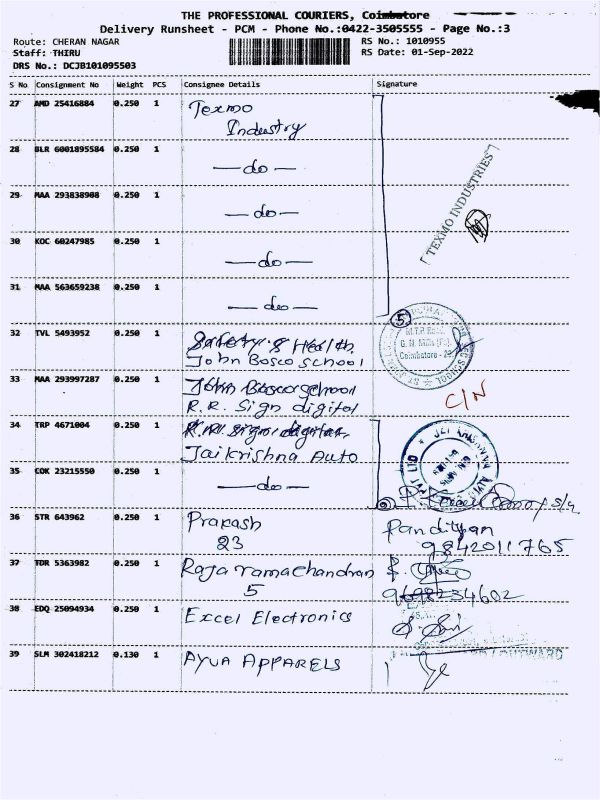 THE PROFESSIONAL COURIERS, Coimbatore
Delivery Runsheet - PCM - Phone No.:0422-3505555 - Page No.:3
Route: CHERAN NAGAR
RS No.: 1010955
Staff: THIRU
RS Date: 01-Sep-2022
DRS No.: DCJB101095503
S No Consignment No Weight PCS Consignee Details Signature
27 AMD 25416884 0.250 1 Texmo
Industry
28 BLR 6001895584 0.250 1 —do—
29 MAA 293838908 0.250 1 —do—
TEXMO INDUSTRIES
30 KOC 60247985 0.250 1 —do—
31 MAA 563659238 0.250 1 —do—
5
32 TVL 5493952 0.250 1 Safety & Health
John Bosco school
M.T.P. Road,
G. N. Mills (Po),
Coimbatore - 29
33 MAA 293997287 0.250 1 John Bosco school
R.R. Sign digital
C/N
34 TRP 4671004 0.250 1 R.R. Sign digital
Jai Krishna Auto
35 COK 23215550 0.250 1 —do—
36 STR 643962 0.250 1 Prakash
23
Pandiyan
9842011765
37 TDR 5363982 0.250 1 Raja ramachandran
5
9698234602
38 EDQ 25094934 0.250 1 Excel Electronics
39 SLM 302418212 0.130 1 AYUA APPARELS